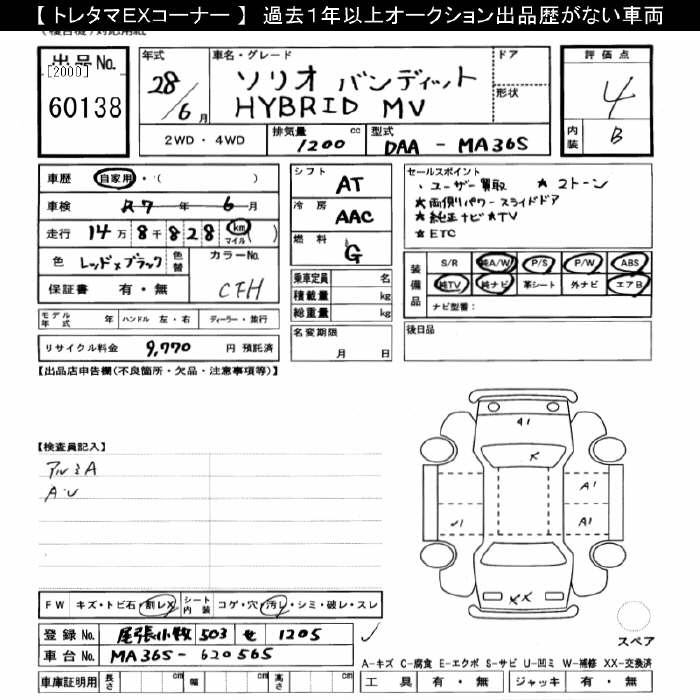 【 トレタマEXコーナー 】 過去１年以上オークション出品歴がない車両
出品No.
[2000]
60138
年式
28/6月
車名・グレード
ソリオ バンディット
HYBRID MV
ドア
形状
評価点
4
内装
B
2WD・4WD
排気量
1200 cc
型式
DAA - MA36S
車歴
自家用・( )
車検
R7年 6月
走行
14万8千828 ( km マイル )
色
レッド×ブラック
色替
カラーNo.
CFH
保証書 有・無
シフト
AT
冷房
AAC
燃料
G
乗車定員 名
積載量 kg
総重量 kg
セールスポイント
・ユーザー買取 ★2トーン
★両側パワースライドドア
★純正ナビ★TV
★ETC
装備品
S/R 純A/W P/S P/W ABS
純TV 純ナビ 革シート 外ナビ エアB
ナビ型番：
モデル年式 年 ハンドル 左・右 ディーラー・並行
名変期限
月 日
後日品
リサイクル料金 9,770 円 預託済
【出品店申告欄(不良箇所・欠品・注意事項等)】
【検査員記入】
アルミA
A・U
A1
X
A1
A1
XX
FW キズ・トビ石・割レX
シート内装 コゲ・穴・汚レ・シミ・破レ・スレ
登録No. 尾張小牧 503 せ 1205
車台No. MA36S-620565
スペア
A-キズ C-腐食 E-エクボ S-サビ U-凹ミ W-補修 XX-交換済
車庫証明用 長さ cm 幅 cm 高さ cm
工具 有・無 ジャッキ 有・無